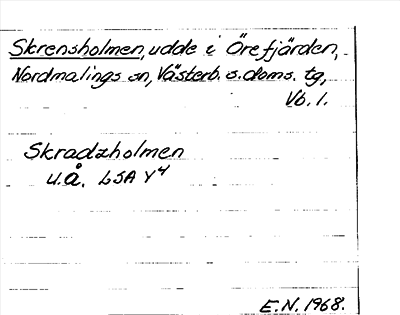 Skrensholmen, udde i Örefjärden,
Nordmalings sn, Västerb. s. doms. tg,
Vb. l.
Skradzholmen
u.å. LSA Y4
E.N. 1968.